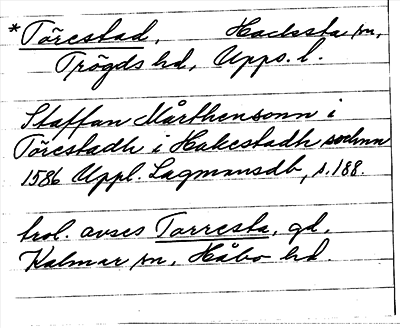 *Törestad, Hacksta sn,
Trögds hd, Upps. l.
Staffan Mårthensonn i
Törestadh i Hakestadh sochnn
1586 Uppl. Lagmansdb, s. 188.
trol. avses Torresta, gd,
Kalmar sn, Håbo hd.